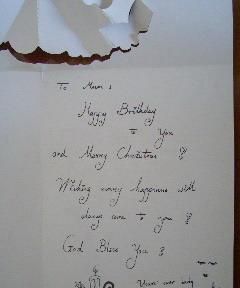 To Mum :
Happy Birthday
to You
and Merry Christmas !!
Wishing every happiness will
always come to you !!
God Bless You !!
Your ever